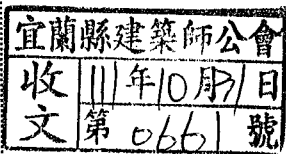 宜蘭縣建築師公會
收文 111年10月31日
第0661號